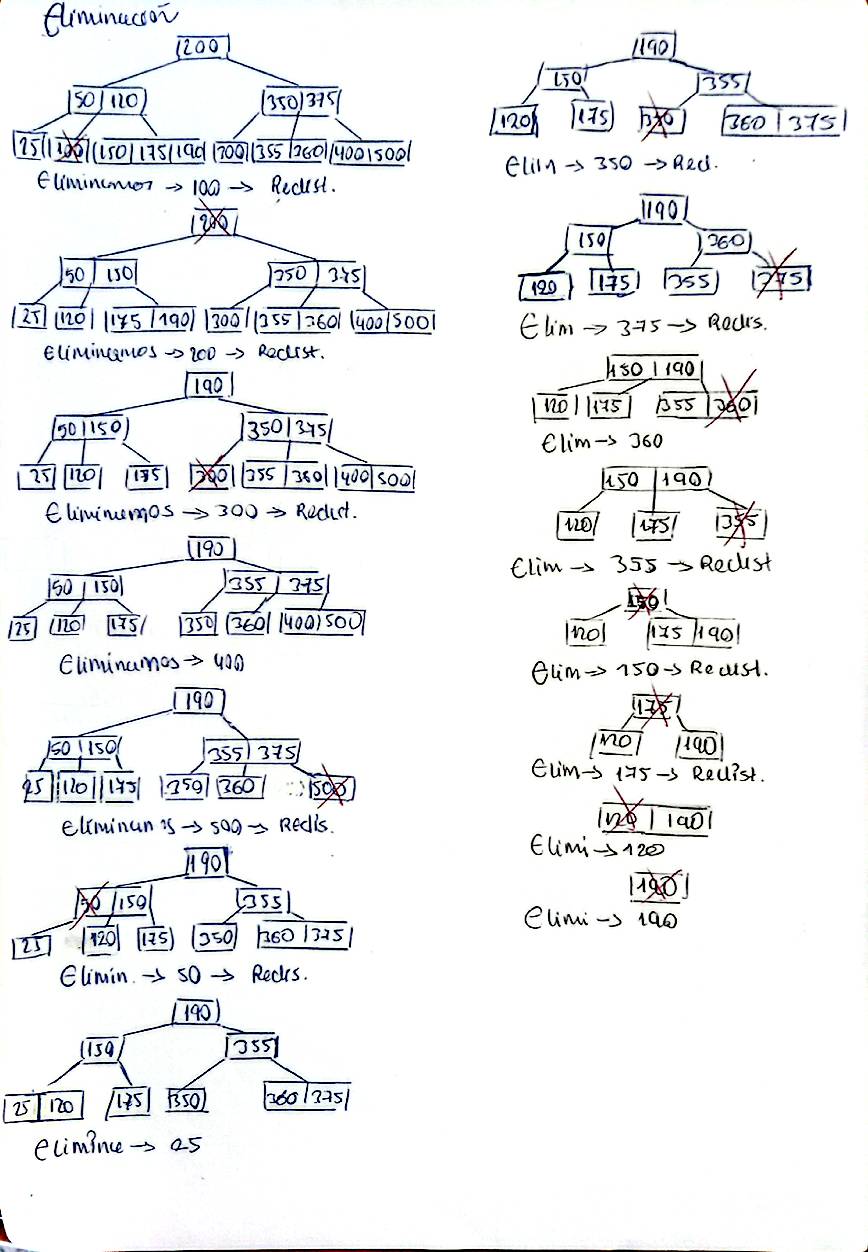 Eliminación
200
50 | 120 350 | 375
25 | 100 | 150 | 175 | 190 200 | 355 | 360 | 400 | 500
Eliminamos → 100 → Redist.
200
50 | 150 350 | 375
25 120 175 | 190 300 355 | 360 400 | 500
Eliminamos → 200 → Redist.
190
50 | 150 350 | 375
25 120 175 300 355 | 360 400 | 500
Eliminamos → 300 → Redist.
190
50 | 150 355 | 375
25 120 175 350 360 400 | 500
Eliminamos → 400
190
50 | 150 355 | 375
25 120 175 350 360 500
→ 500 → Redis.
190
50 | 150 355
25 120 175 350 360 | 375
Elimin. → 50 → Redis.
190
150 355
25 | 120 175 350 360 | 375
→ 25
190
150 355
120 175 350 360 | 375
Elim → 350 → Red.
190
150 360
120 175 355 375
Elim → 375 → Redis.
150 | 190
120 175 355 | 360
Elim → 360
150 | 190
120 175 355
Elim → 355 → Redist
150
120 175 | 190
Elim → 150 → Redist.
175
120 190
Elim → 175 → Redist.
120 | 190
Elimi → 120
190
Elimi → 190